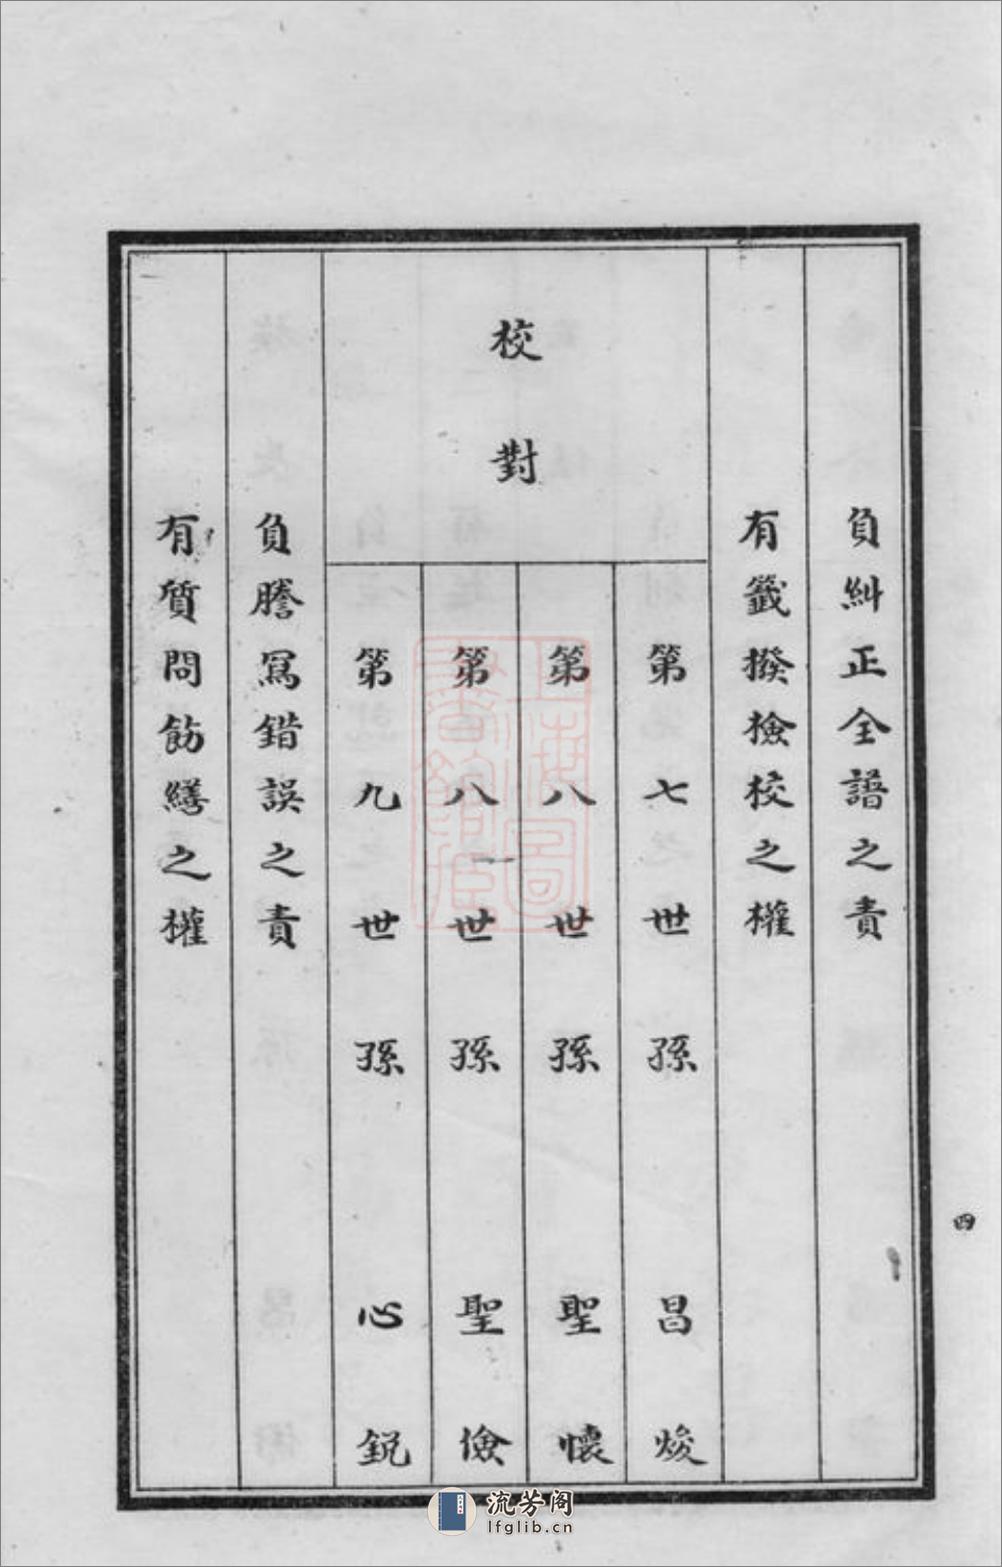 負糾正全譜之責
有籤撥撿校之權
校對
第七世孫 昌焌
第八世孫 聖懷
第八世孫 聖儉
第九世孫 心銳
負謄寫錯誤之責
有質問飭繕之權
四
流芳阁
lfglib.cn